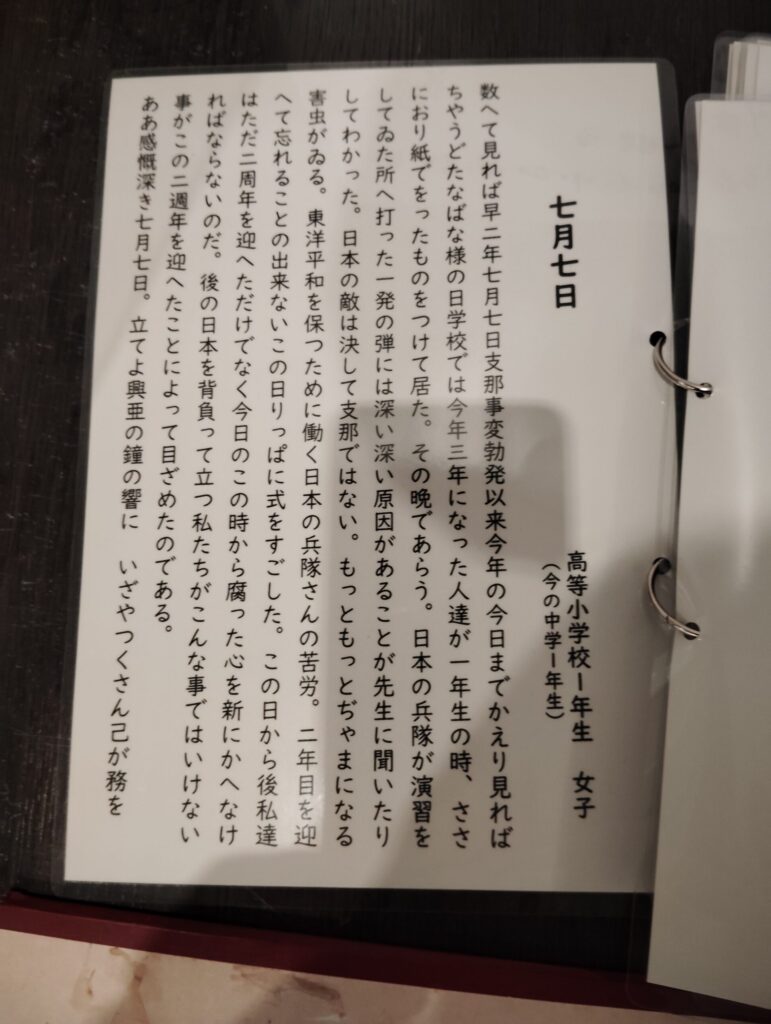 七月七日
高等小学校1年生　女子
（今の中学1年生）
数へて見れば早二年七月七日支那事変勃発以来今年の今日までかえり見れば
ちやうどたなばな様の日学校では今年三年になった人達が一年生の時、ささ
におり紙でをったものをつけて居た。その晩であらう。日本の兵隊が演習を
してゐた所へ打った一発の弾には深い深い原因があることが先生に聞いたり
してわかった。日本の敵は決して支那ではない。もっともっとぢゃまになる
害虫がゐる。東洋平和を保つために働く日本の兵隊さんの苦労。二年目を迎
へて忘れることの出来ないこの日りっぱに式をすごした。この日から後私達
はただ二周年を迎へただけでなく今日のこの時から腐った心を新にかへなけ
ればならないのだ。後の日本を背負って立つ私たちがこんな事ではいけない
事がこの二週年を迎へたことによって目ざめたのである。
ああ感慨深き七月七日。立てよ興亜の鐘の響に　いざやつくさん己が務を